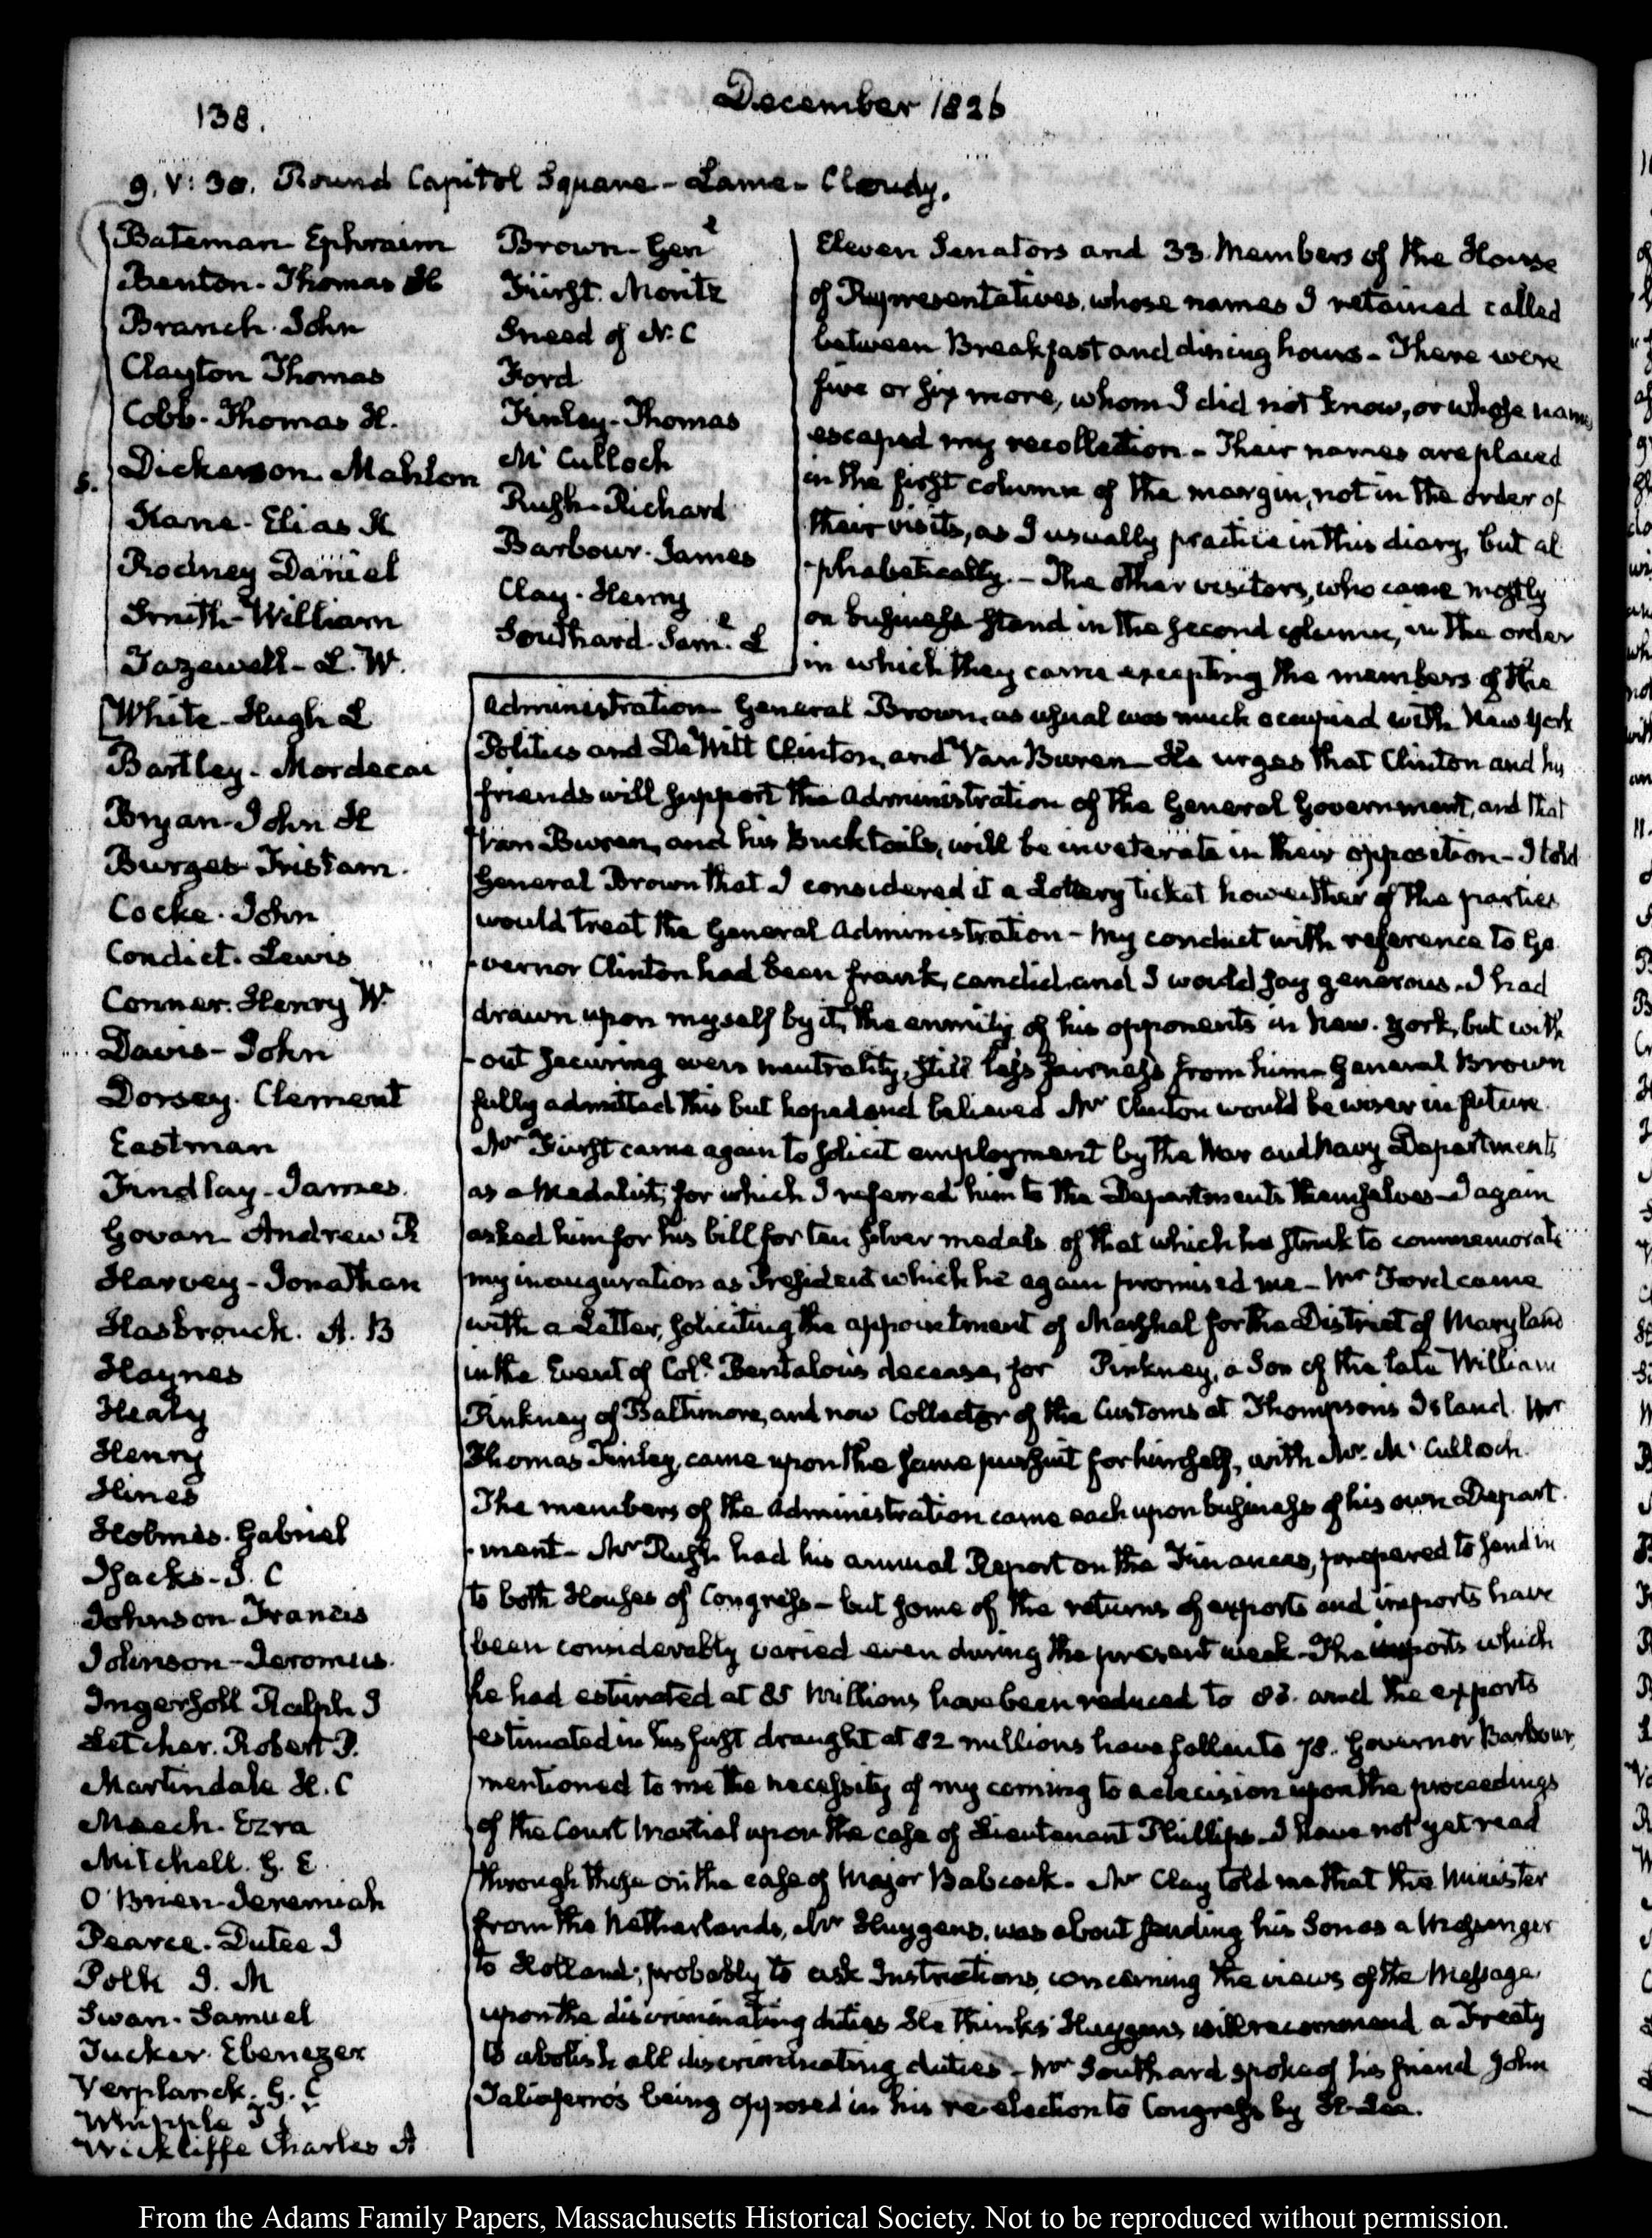 138.
December 1826
9. V: 30. Round Capitol Square - Lame - Cloudy.
Bateman Ephraim
Benton - Thomas H
Branch. John
Clayton Thomas
Cobb - Thomas H.
S. Dickerson. Mahlon
Kane - Elias K
Rodney Daniel
Smith - William
Tazewell - L. W.
White - Hugh L
Bartley - Mordecai
Bryan - John H
Burges Tristam.
Cocke. John
Condict. Lewis
Conner. Henry W.
Davis - John
Dorsey. Clement
Eastman
Findlay - James.
Govan Andrew R
Harvey - Jonathan
Hasbrouck. A. B
Haynes
Healy
Henry
Hines
Holmes. Gabriel
Isacks - J. C
Johnson Francis
Johnson - Jeromus.
Ingersoll Ralph I
Letcher. Robert P.
Martindale H. C
Meech. Ezra
Mitchell. G. E.
O'Brien Jeremiah
Pearce. Dutee J
Polk J. K
Swan. Samuel
Tucker Ebenezer
Verplanck. G. C
Whipple T.
Wickliffe Charles A
Brown - Genl
Fürst. Moritz
Sneed of N. C
Ford
Finley - Thomas
Mc Culloch
Rush - Richard
Barbour - James
Clay - Henry
Southard. Saml. L
Eleven Senators and 33. Members of the House
of Representatives, whose names I retained called
between Breakfast and dining hours - There were
five or six more, whom I did not know, or whose names
escaped my recollection - Their names are placed
in the first column of the margin, not in the order of
their visits, as I usually practice in this diary, but al
-phabetically. - The other visitors, who came mostly
on business stand in the second column, in the order
in which they came excepting the members of the
Administration General Brown, as usual was much occupied with New York
Politics and De Witt Clinton, and Van Buren - He urges that Clinton and his
friends will support the Administration of the General Government, and that
Van Buren, and his Bucktails, will be inveterate in their opposition - I told
General Brown that I considered it a Lottery ticket how either of the parties
would treat the General Administration - My conduct with reference to Go
-vernor Clinton had been frank, candid, and I would say generous. I had
drawn upon myself by it, the enmity of his opponents in New York, but with
-out securing even neutrality, still less fairness from him - General Brown
fully admitted this but hoped and believed Mr Clinton would be wiser in future.
Mr Fürst came again to solicit employment by the War and Navy Departments
as a Medalist, for which I referred him to the Departments themselves - I again
asked him for his bill for ten silver medals of that which he struck to commemorate
my inauguration as President which he again promised me - Mr Ford came
with a Letter, soliciting the appointment of Marshal for the District of Maryland
in the Event of Col. Bentalou's decease, for Pinkney, a Son of the late William
Pinkney of Baltimore, and now Collector of the Customs at Thompsons Island. Mr
Thomas Finley, came upon the same pursuit for himself, with Mr. Mc Culloch.
The members of the Administration came each upon business of his own Depart
-ment - Mr Rush had his annual Report on the Finances, prepared to send in
to both Houses of Congress - but some of the returns of exports and imports have
been considerably varied even during the present week - The imports which
he had estimated at 85 Millions have been reduced to 83. and the exports
estimated in his first draught at 82 millions have fallen to 78. Governor Barbour,
mentioned to me the necessity of my coming to a decision upon the proceedings
of the Court Martial upon the case of Lieutenant Phillips. I have not yet read
through those on the case of Major Babcock. Mr Clay told me that the Minister
from the Netherlands, Mr Huygens, was about sending his Son as a Messenger
to Holland; probably to ask Instructions, concerning the views of the Message
upon the discriminating duties He thinks Huygens will recommend a Treaty
to abolish all discriminating duties - Mr Southard spoke of his friend John
Taliaferro's being opposed in his re-election to Congress by H. Lee.
From the Adams Family Papers, Massachusetts Historical Society. Not to be reproduced without permission.